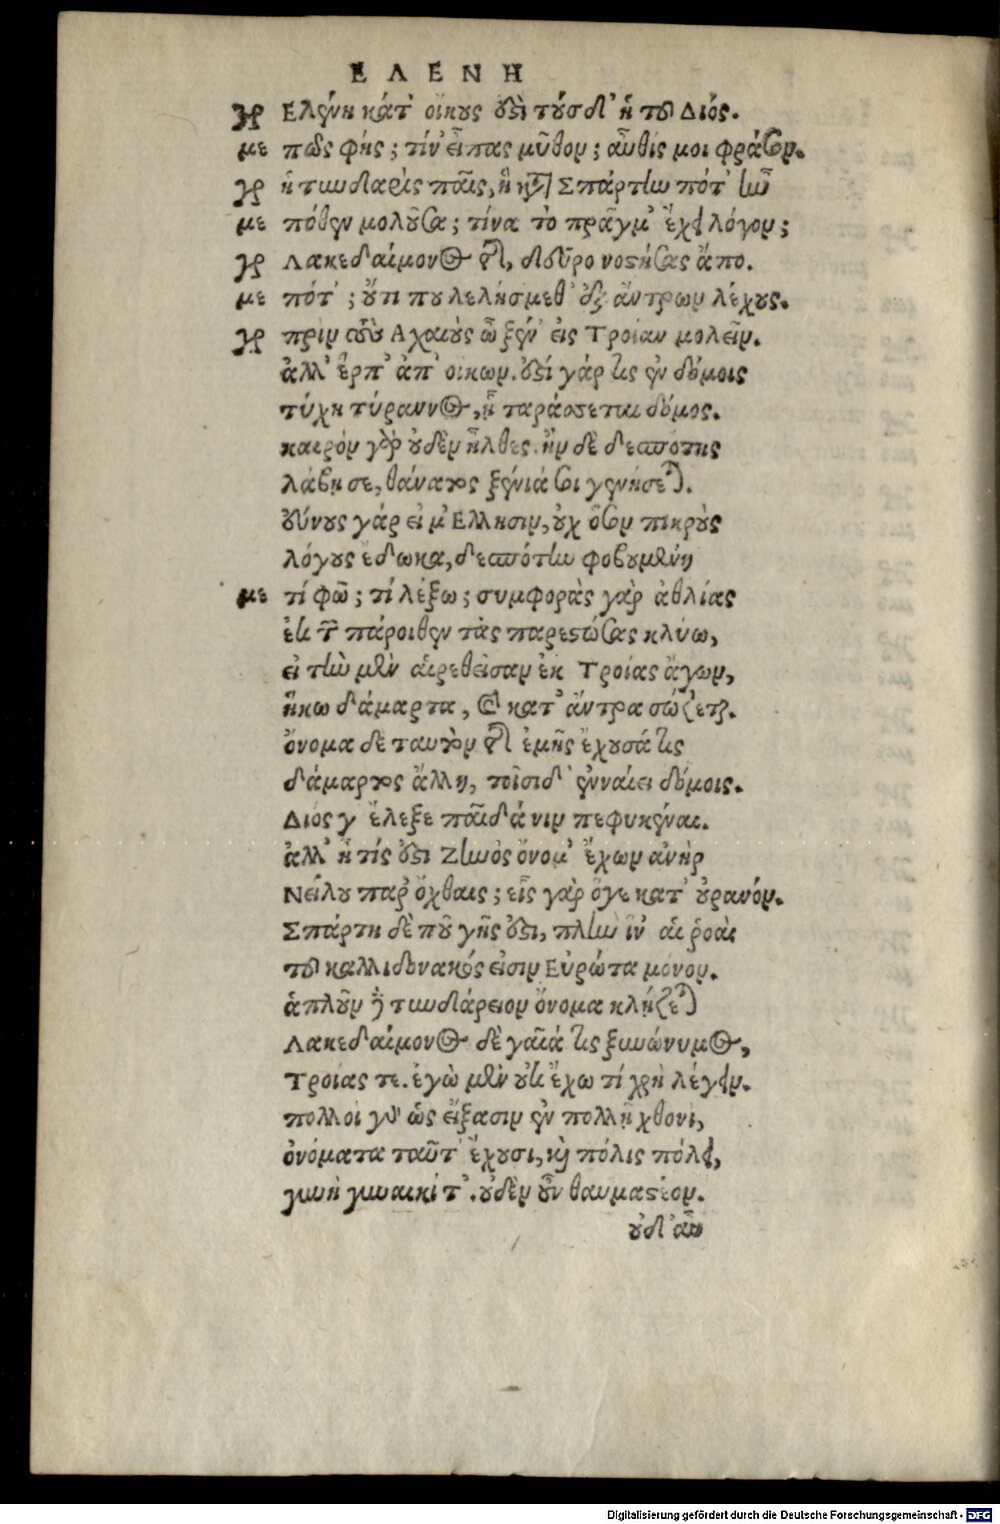 ΕΛΕΝΗ
γρ Ελένη κατ' οἴκους ἐστὶ τούσδ' ἡ τοῦ Διός.
με πῶς φής; τίν' εἶπας μῦθον; αὖθίς μοι φράσον.
γρ ἡ τυνδαρὶς παῖς, ἣ κατὰ Σπάρτην πότ' ἦν
με πόθεν μολοῦσα; τίνα τὸ πρᾶγμ' ἔχει λόγον;
γρ Λακεδαίμονος γῆς, δεῦρο νοστήσας ἄπο.
με πότ'; οὔτι που λελήσμεθ' ἐξ ἄντρων λέχους.
γρ πρὶν τοὺς Αχαιοὺς ὦ ξέν' εἰς Τροίαν μολεῖν.
ἀλλ' ἕρπ' ἀπ' οἴκων. ἔστι γάρ τις ἐν δόμοις
τύχη τύραννος, ᾗ ταράσσεται δόμος.
καιρὸν γὰρ οὐδὲν ἦλθες. ἢν δὲ δεσπότης
λάβῃ σε, θάνατος ξένιά σοι γενήσεται.
εὔνους γάρ εἰμ' Ελλησιν, οὐχ ὅσον πικροὺς
λόγους ἔδωκα, δεσπότην φοβουμένη
με τί φῶ; τί λέξω; συμφορὰς γὰρ ἀθλίας
ἐκ τῶν πάροιθεν τὰς παρεστώσας κλύω,
εἰ τὴν μὲν αἱρεθεῖσαν ἐκ Τροίας ἄγων,
ἥκω δάμαρτα, καὶ κατ' ἄντρα σώζεται.
ὄνομα δὲ ταυτὸν τῆς ἐμῆς ἔχουσά τις
δάμαρτος ἄλλη, τοῖσιδ' ἐνναίει δόμοις.
Διὸς γ' ἔλεξε παῖδά νιν πεφυκέναι.
ἀλλ' ἦ τίς ἐστι Ζηνὸς ὄνομ' ἔχων ἀνὴρ
Νείλου παρ' ὄχθαις; εἷς γὰρ ὅγε κατ' οὐρανόν.
Σπάρτη δὲ ποῦ γῆς ἐστι, πλὴν ἵν' αἱ ῥοαὶ
τοῦ καλλιδόνακός εἰσιν Εὐρώτα μόνον.
ἁπλοῦν δὲ τυνδάρειον ὄνομα κλῄζεται
Λακεδαίμονος δὲ γαῖά τις ξυνώνυμος,
Τροίας τε. ἐγὼ μὲν οὐκ ἔχω τί χρὴ λέγειν.
πολλοὶ γὰρ ὡς εἴξασιν ἐν πολλῇ χθονὶ,
ὀνόματα ταῦτ' ἔχουσι, καὶ πόλις πόλει,
γυνὴ γυναικί τ'. οὐδὲν οὖν θαυμαστέον.
οὐδ' αὖ
Digitalisierung gefördert durch die Deutsche Forschungsgemeinschaft - DFG